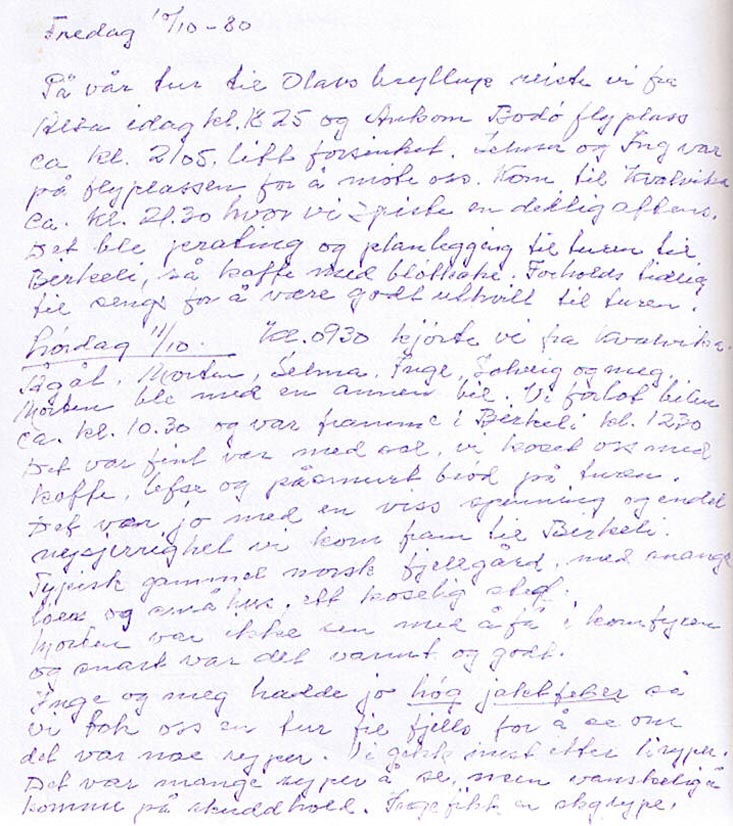 Fredag 10/10-80
På vår tur til Olavs bryllup reiste vi fra
Alta idag kl. 1825 og Ankom Bodö flyplass
ca kl. 2105, litt forsinket. Selma og Ing var
på flyplassen for å möte oss. Kom til Kvalvika
ca. kl. 21.30 hvor vi spiste en deilig aftens.
Det ble prating og planlegging til turen til
Birkeli, så kaffe med blötkake. Forholds tidlig
til sengs for å være godt uthvilt til turen.
Lördag 11/10. Kl. 0930 kjörte vi fra Kvalvika.
Morten, Selma, Inge, Solveig og meg.
Morten ble med en annen bil. Vi forlot bilen
ca. kl. 10.30 og var framme i Birkeli kl. 1230
Det var fint vær med sol, vi koset oss med
kaffe, lefse og påsmurt bröd på turen.
Det var jo med en viss spenning og endel
nysjerrighet vi kom fram til Birkeli.
Typisk gammel norsk fjellgård, med mange
löer og små hus, ett koselig sted.
Morten var ikke sen med å få i komfyren
og snart var det varmt og godt.
Inge og meg hadde jo hög jaktfeber så
vi tok oss en tur til fjells for å se om
det var noe ryper. Vi gikk mest etter liryper.
Det var mange ryper å se, men vanskelig å
komme på skuddhold. Inge fikk en